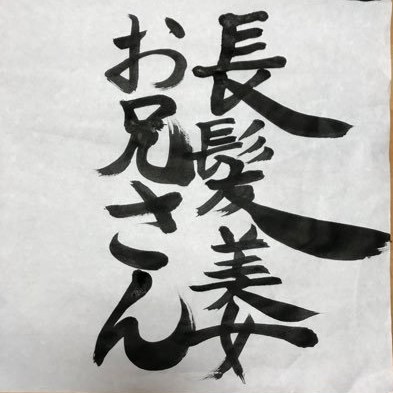 長髪美女
お兄さん